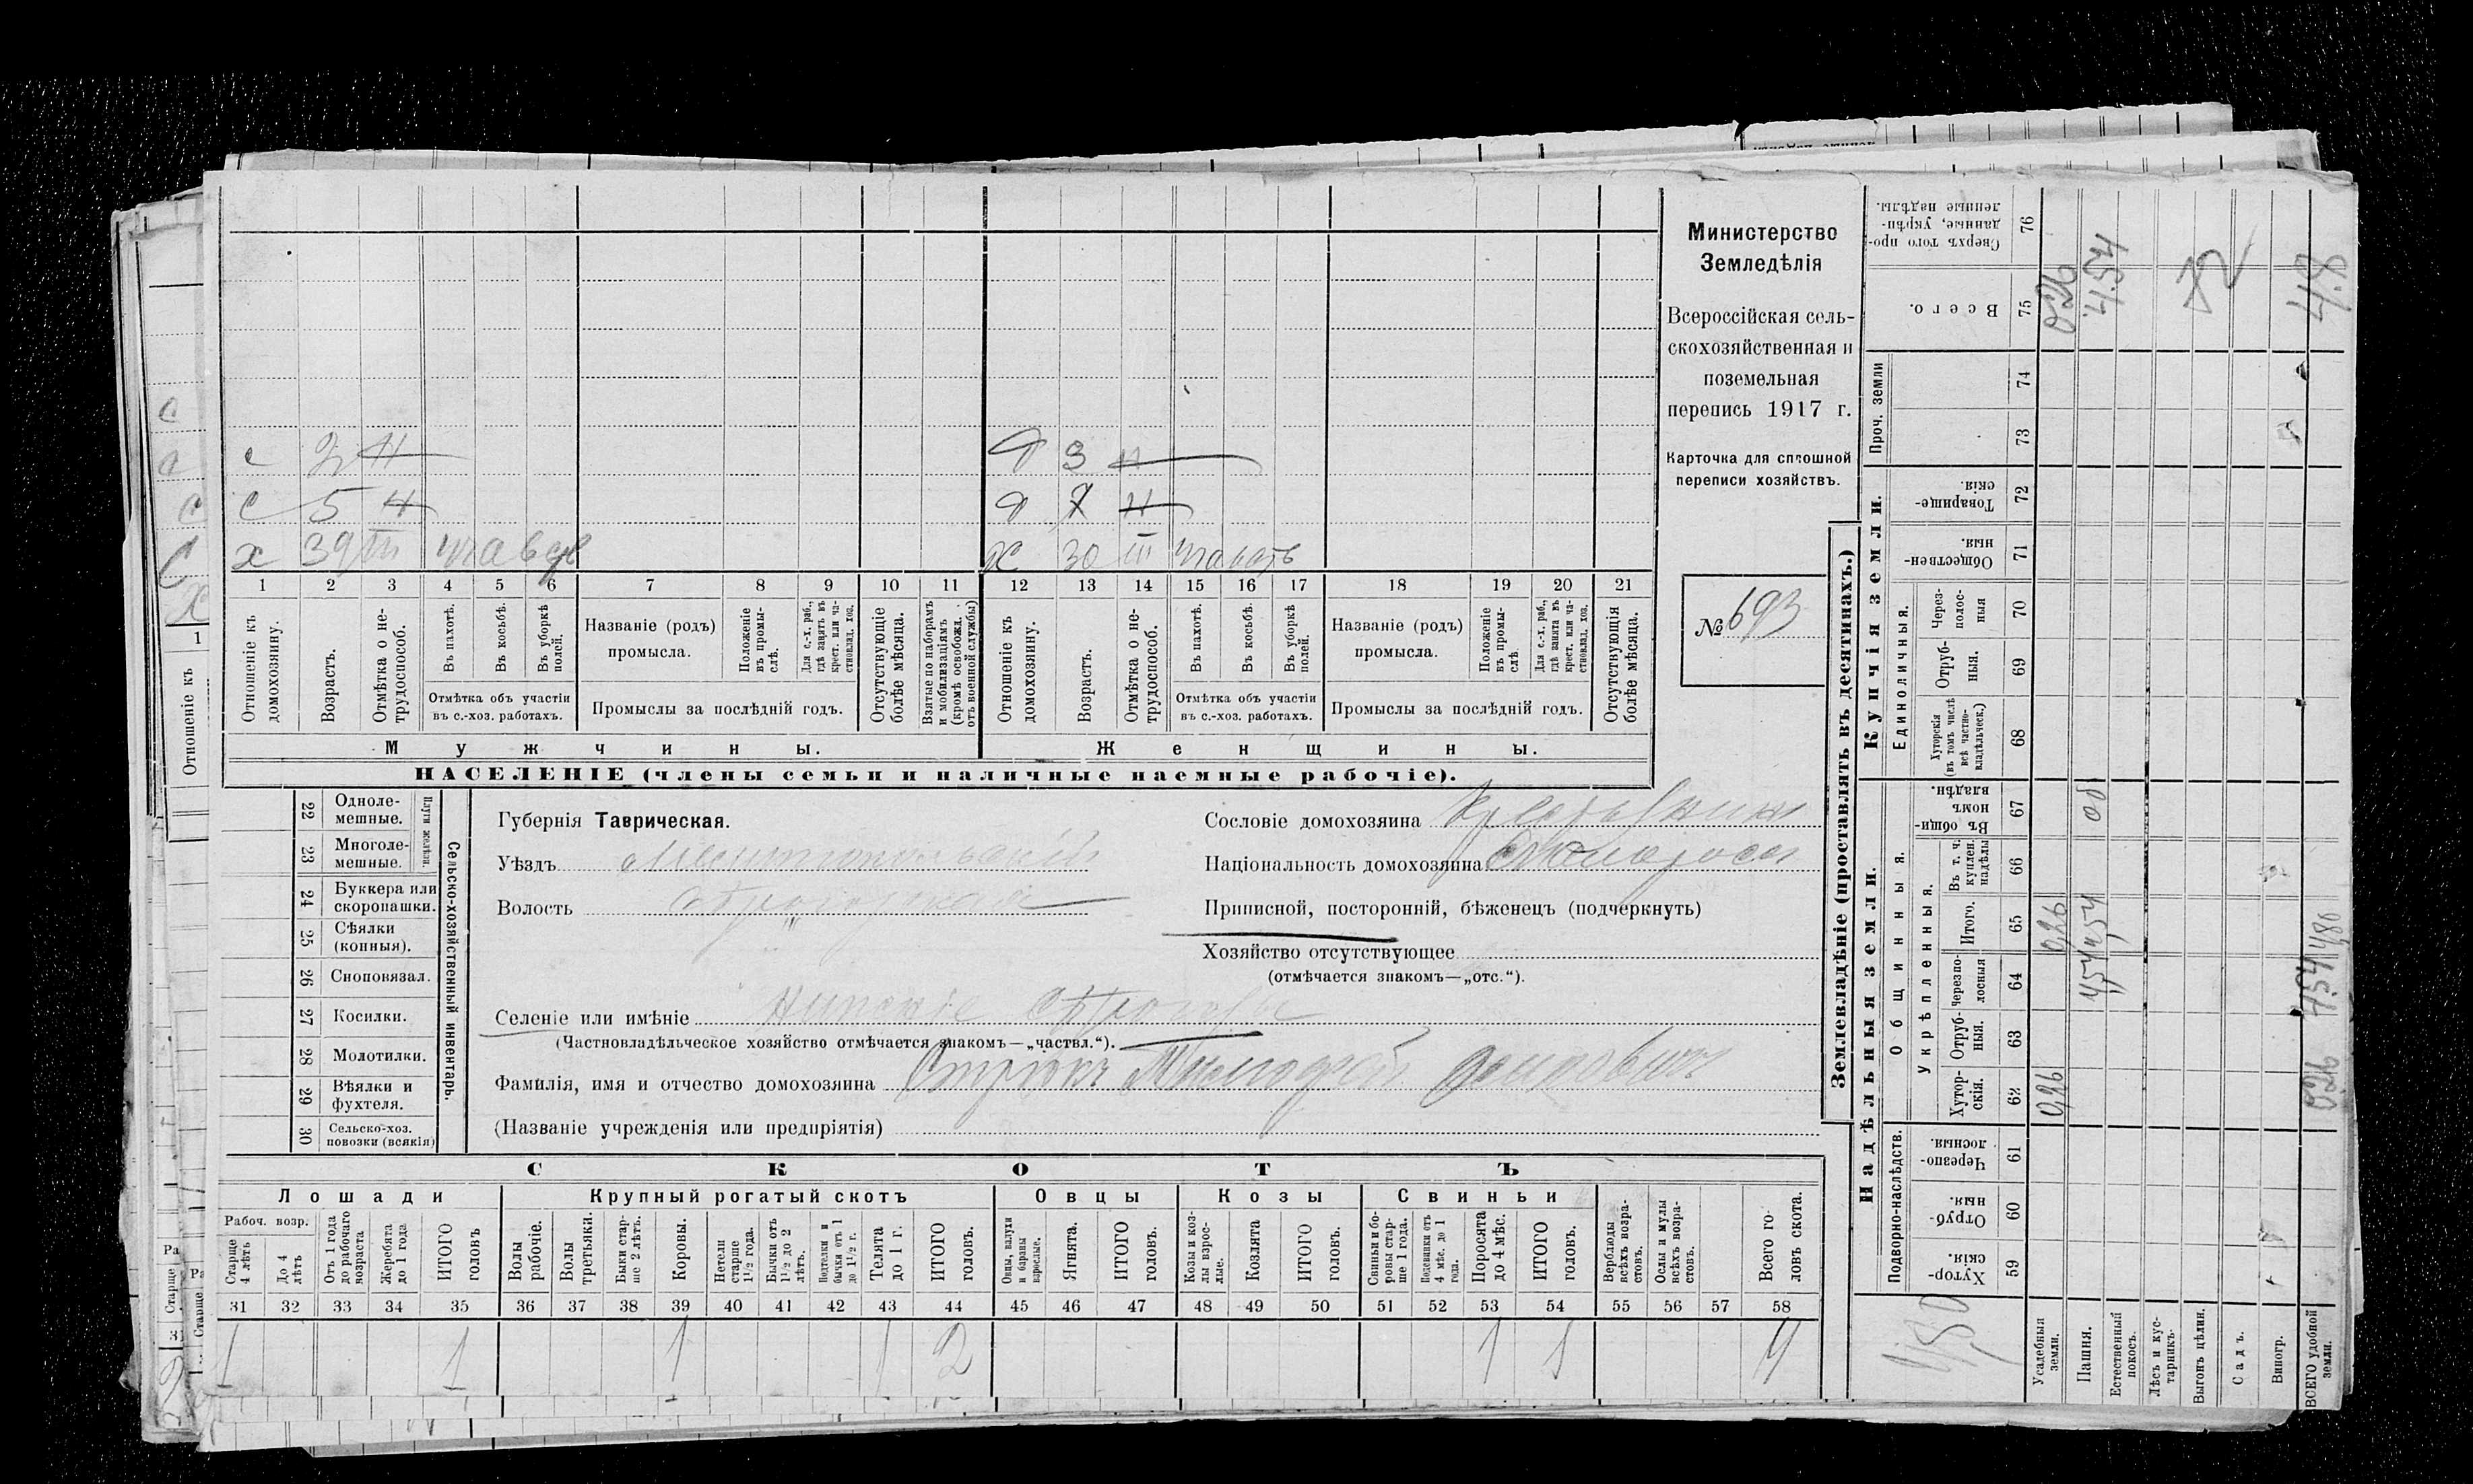 с 2 н
с 5 н
х 39 III участв
д 3 н
д 7 н
х 30 III участв
1 2 3 4 5 6 7 8 9 10 11 12 13 14 15 16 17 18 19 20 21
Отношеніе къ домохозяину.
Возрастъ.
Отмѣтка о не-
трудоспособ.
Въ пахотѣ.
Въ косьбѣ.
Въ уборкѣ полей.
Отмѣтка объ участіи
въ с.-хоз. работахъ.
Названіе (родъ)
промысла.
Положеніе въ промы-
слѣ.
Для с.-х. раб., гдѣ занятъ въ крест. или ча-
стновлад. хоз.
Промыслы за послѣдній годъ.
Отсутствующіе болѣе мѣсяца.
Взятые по наборамъ и мобилизаціямъ (кромѣ освобожд. отъ военной службы)
Отношеніе къ домохозяину.
Возрастъ.
Отмѣтка о не-
трудоспособ.
Въ пахотѣ.
Въ косьбѣ.
Въ уборкѣ полей.
Отмѣтка объ участіи
въ с.-хоз. работахъ.
Названіе (родъ)
промысла.
Положеніе въ промы-
слѣ.
Для с.-х. раб., гдѣ занята въ крест. или ча-
стновлад. хоз.
Промыслы за послѣдній годъ.
Отсутствующія болѣе мѣсяца.
Мужчины.
Женщины.
НАСЕЛЕНІЕ (члены семьи и наличные наемные рабочіе).
Министерство
Земледѣлія
Всероссійская сель-
скохозяйственная и
поземельная
перепись 1917 г.
Карточка для сплошной
переписи хозяйствъ.
№ 693
22 Одноле-
мешные.
23 Многоле-
мешные.
Плуги желѣзн.
24 Буккера или
скоропашки.
25 Сѣялки
(конныя).
26 Сноповязал.
27 Косилки.
28 Молотилки.
29 Вѣялки и
фухтеля.
30 Сельско-хоз.
повозки (всякія)
Сельско-хозяйственный инвентарь.
Губернія Таврическая.
Уѣздъ Мелитопольскій
Волость
Сословіе домохозяина
Національность домохозяина
Приписной, посторонній, бѣженецъ (подчеркнуть)
Хозяйство отсутствующее
(отмѣчается знакомъ—„отс.“).
Селеніе или имѣніе
(Частновладѣльческое хозяйство отмѣчается знакомъ—„частвл.“).
Фамилія, имя и отчество домохозяина
(Названіе учрежденія или предпріятія)
СКОТЪ
Лошади
Крупный рогатый скотъ
Овцы
Козы
Свиньи
Рабоч. возр.
Старше 4 лѣтъ
До 4 лѣтъ
Отъ 1 года до рабочаго возраста
Жеребята до 1 года
ИТОГО головъ
Волы рабочіе.
Волы третьяки.
Быки стар-
ше 2 лѣтъ.
Коровы.
Нетели старше 1½ года.
Бычки отъ 1½ до 2 лѣтъ.
Подтелки и бычки отъ 1 до 1½ г.
Телята до 1 г.
ИТОГО головъ.
Овцы, валухи и бараны взрослые.
Ягнята.
ИТОГО головъ.
Козы и коз-
лы взрос-
лые.
Козлята
ИТОГО головъ.
Свиньи и бо-
ровы стар-
ше 1 года.
Подсвинки отъ 4 мѣс. до 1 года.
Поросята до 4 мѣс.
ИТОГО головъ.
Верблюды всѣхъ возра-
стовъ.
Ослы и мулы всѣхъ возра-
стовъ.
Всего го-
ловъ скота.
31 32 33 34 35 36 37 38 39 40 41 42 43 44 45 46 47 48 49 50 51 52 53 54 55 56 57 58
1 1 1 1 2 1 1 4
Землевладѣніе (проставлять въ десятинахъ.)
Надѣльныя земли.
Купчія земли.
Проч. земли
Подворно-наслѣдств.
Общинныя.
Укрѣпленныя.
Единоличныя.
Хутор-
скія. 59
Отруб-
ныя. 60
Черезпо-
лосныя. 61
Хутор-
скія. 62
Отруб-
ныя. 63
Черезпо-
лосныя 64
Итого. 65
Въ т. ч. куплен. надѣлы 66
Въ общин-
номъ владѣн. 67
Хуторскія (въ томъ числѣ всѣ частно-
владѣльческ.) 68
Отруб-
ныя. 69
Через-
полос-
ныя 70
Обществен-
ныя. 71
Товарище-
скія. 72
73
74
Всего. 75
Сверхъ того про-
данные, укрѣп-
ленные надѣлы. 76
Усадебныя земли. 0,26 0,26 0,26
Пашня. 4,54 4,54 4,54
Естественный покосъ.
Лѣсъ и кус-
тарникъ.
Выгонъ цѣлин.
Садъ.
Виногр.
ВСЕГО удобной земли. 0,26 4,54 4,80 4,8